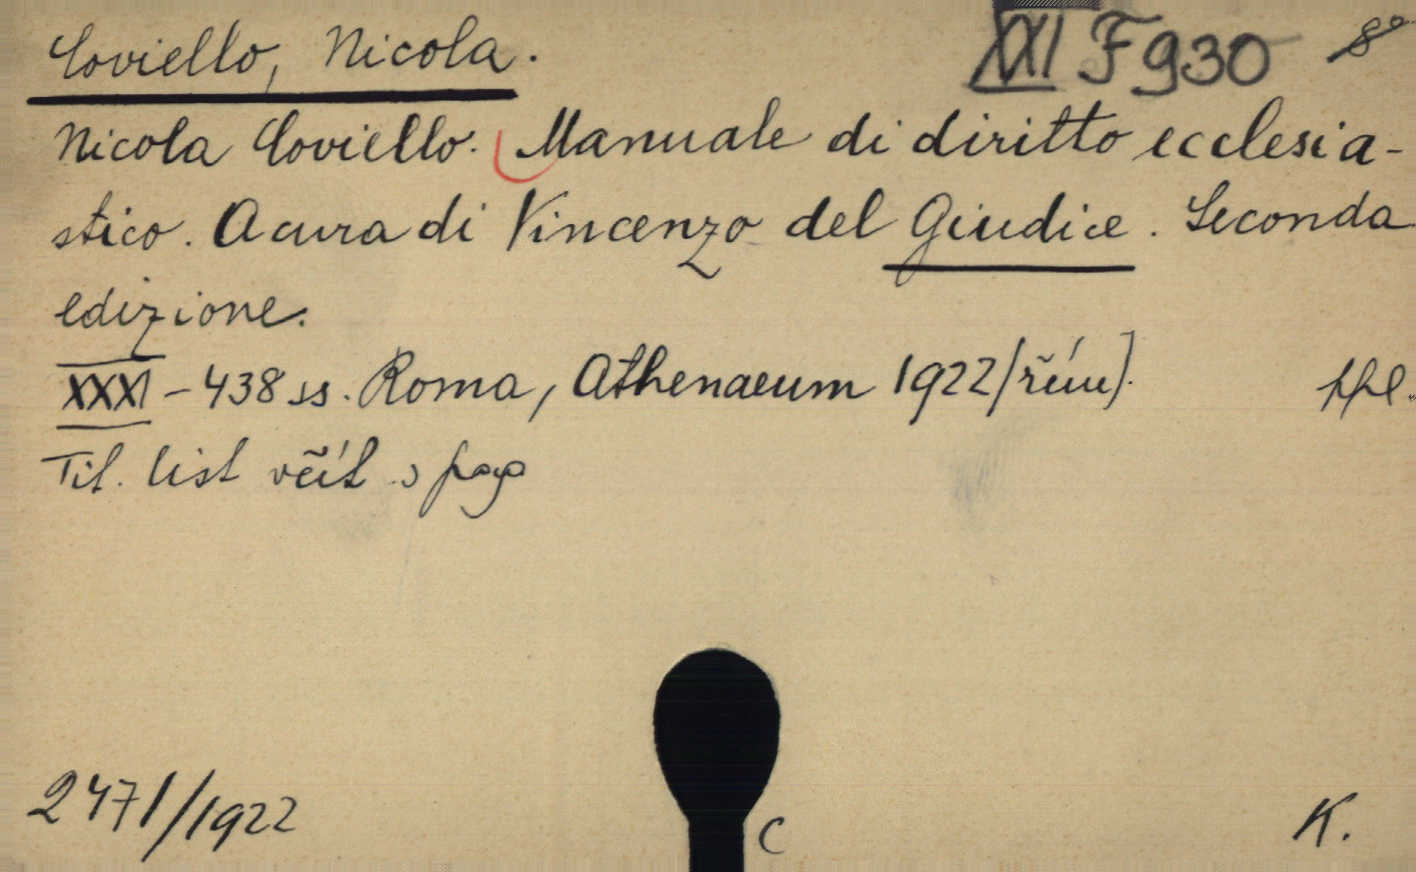 Coviello, Nicola. XXI F 930 8°
Nicola Coviello. Manuale di diritto ecclesia-
stico. A cura di Vincenzo del Giudice. Seconda
edizione.
XXXI - 438 ss. Roma, Athenaeum 1922/řím/.
Tit. list včít. s pag
2471/1922
C
K.